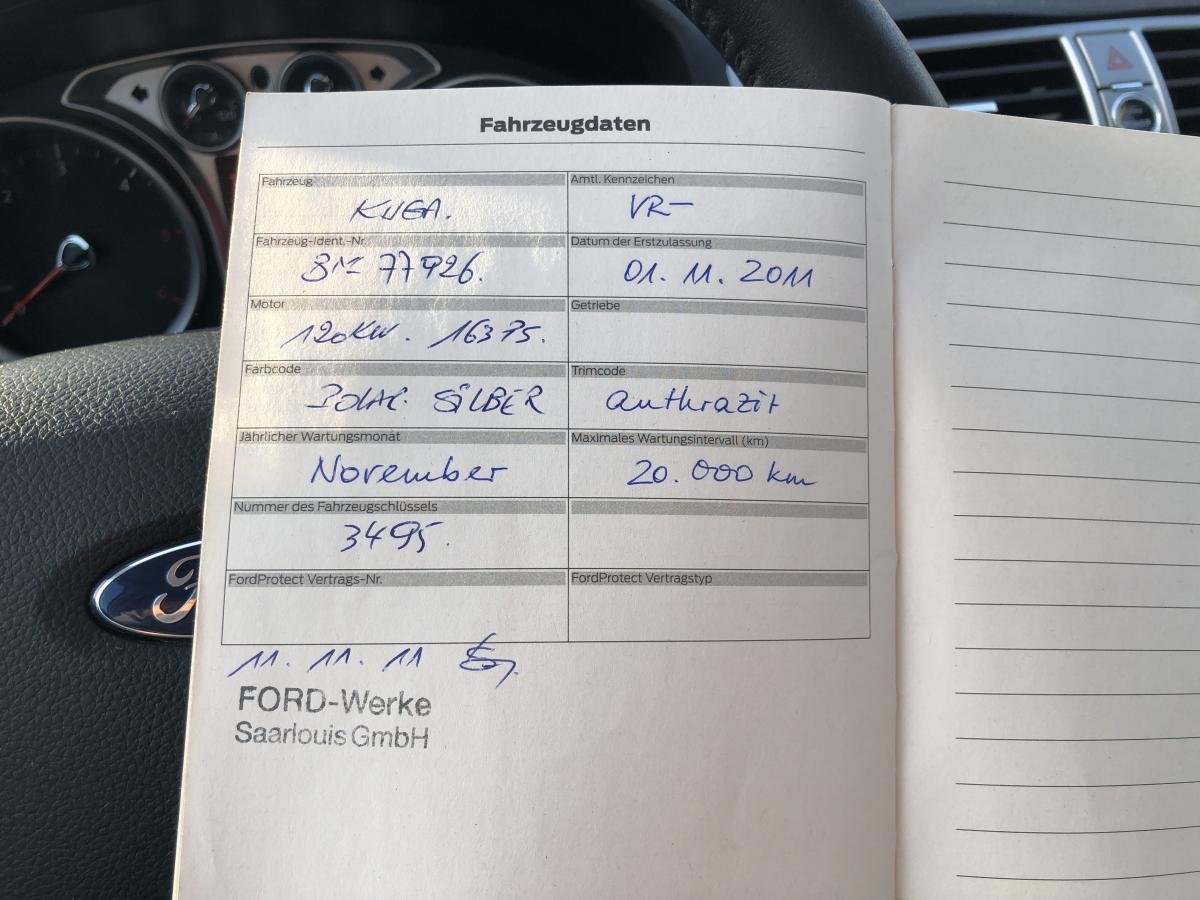 Fahrzeugdaten
Fahrzeug
Amtl. Kennzeichen
KUGA.
VR-
Fahrzeug-Ident.-Nr.
Datum der Erstzulassung
77926.
01. 11. 2011
Motor
Getriebe
120KW. 16375.
Farbcode
Trimcode
POLAR SILBER
anthrazit
Jährlicher Wartungsmonat
Maximales Wartungsintervall (km)
November
20.000 km
Nummer des Fahrzeugschlüssels
3495.
FordProtect Vertrags-Nr.
FordProtect Vertragstyp
11. 11. 11
FORD-Werke
Saarlouis GmbH